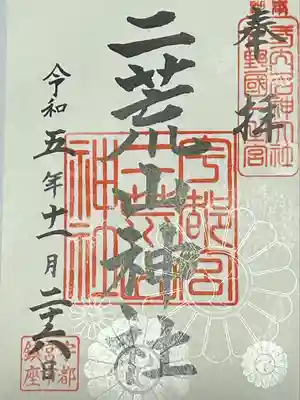 奉拝
式内名神大社
下野國一宮
二荒山神社
宇都宮
二荒山
神社
令和五年十一月二十六日
宇都宮鎮座